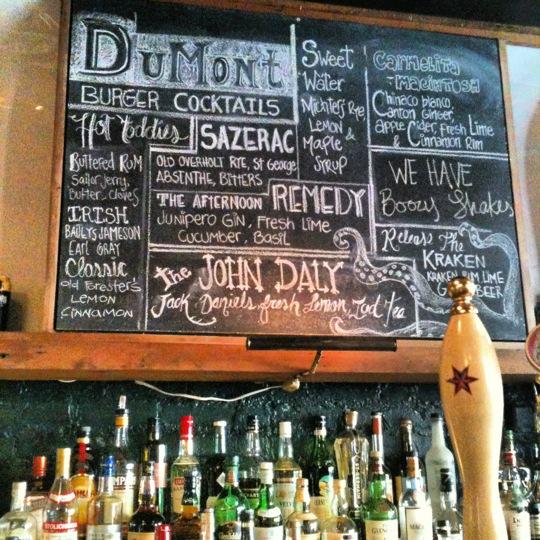 DUMONT
BURGER COCKTAILS
Hot Toddies
Buttered Rum
Sailor Jerry,
Butter, Cloves
IRISH
BAILEYS JAMESON
EARL GRAY
Classic
Old Forester's
LEMON
CINNAMON
SAZERAC
OLD OVERHOLT RYE, St George
ABSENTHE, BITTERS
THE AFTERNOON REMEDY
JUNIPERO GIN, FRESH LIME
CUCUMBER, BASIL
the JOHN DALY
Jack Daniels, fresh Lemon, Iced tea
Sweet
Water
Michter's Rye,
LEMON &
MAPLE
SYRUP
CARMELITA
MACINTOSH
Chinaco blanco,
Canton Ginger,
apple Cider, Fresh Lime
& Cinnamon Rim
WE HAVE
Boozy Shakes
Release The
KRAKEN
KRAKEN RUM LIME
BEER
STOLICHNAYA